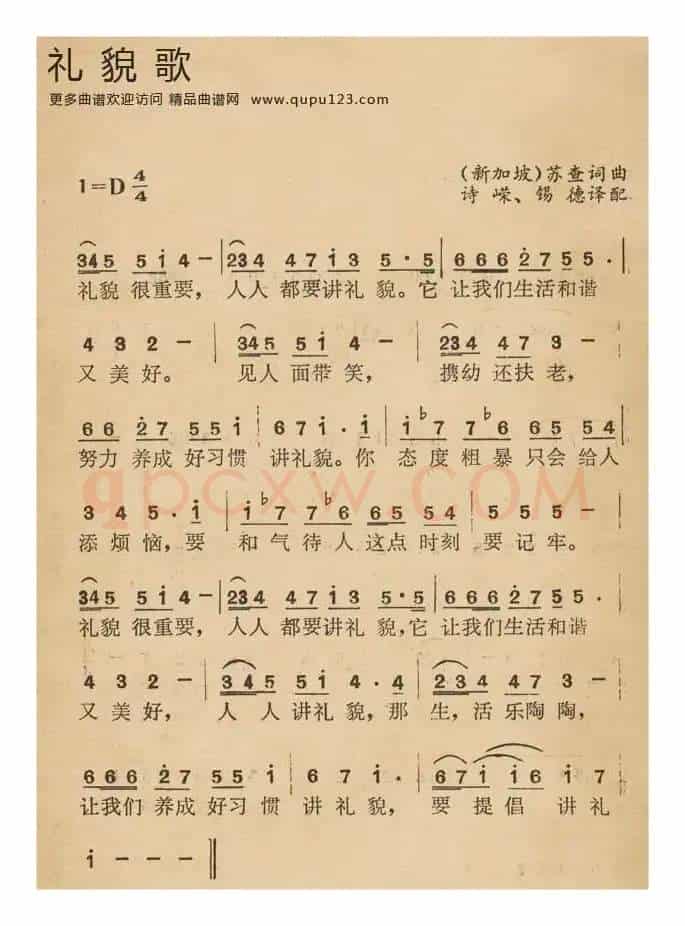 礼貌歌
更多曲谱欢迎访问 精品曲谱网 www.qupu123.com
1=D 4/4
(新加坡)苏查词曲
诗 嵘、锡 德译配
345 51 4 - | 234 47 13 5·5 | 666 27 55·|
礼貌 很重要, 人人 都要讲礼 貌。它 让我们生活和谐
4 3 2 - | 345 51 4 - | 234 47 3 -
又 美 好。 见人 面带 笑, 携幼 还扶 老,
66 27 55 1 | 67 1·1 | 1♭7 7♭6 65 54 |
努力 养成 好习惯 讲礼貌。你 态度粗暴只会给人
3 4 5·1 | 1♭7 7♭6 655 54
添 烦 恼, 要 和气待人 这点 时刻 要 记 牢。
345 51 4 - | 234 47 13 5·5 | 666 27 55·|
礼貌 很重要, 人人 都要讲礼 貌,它 让我们生活和谐
4 3 2 - | 345 51 4·4 | 234 47 3 - |
又 美 好, 人 人 讲礼 貌,那 生,活 乐陶 陶,
666 27 55 1 | 6 7 1· | 671 116 1 7
让我们 养成 好习 惯 讲 礼 貌, 要 提倡 讲 礼
1 - - - ‖
qpcxw.COM